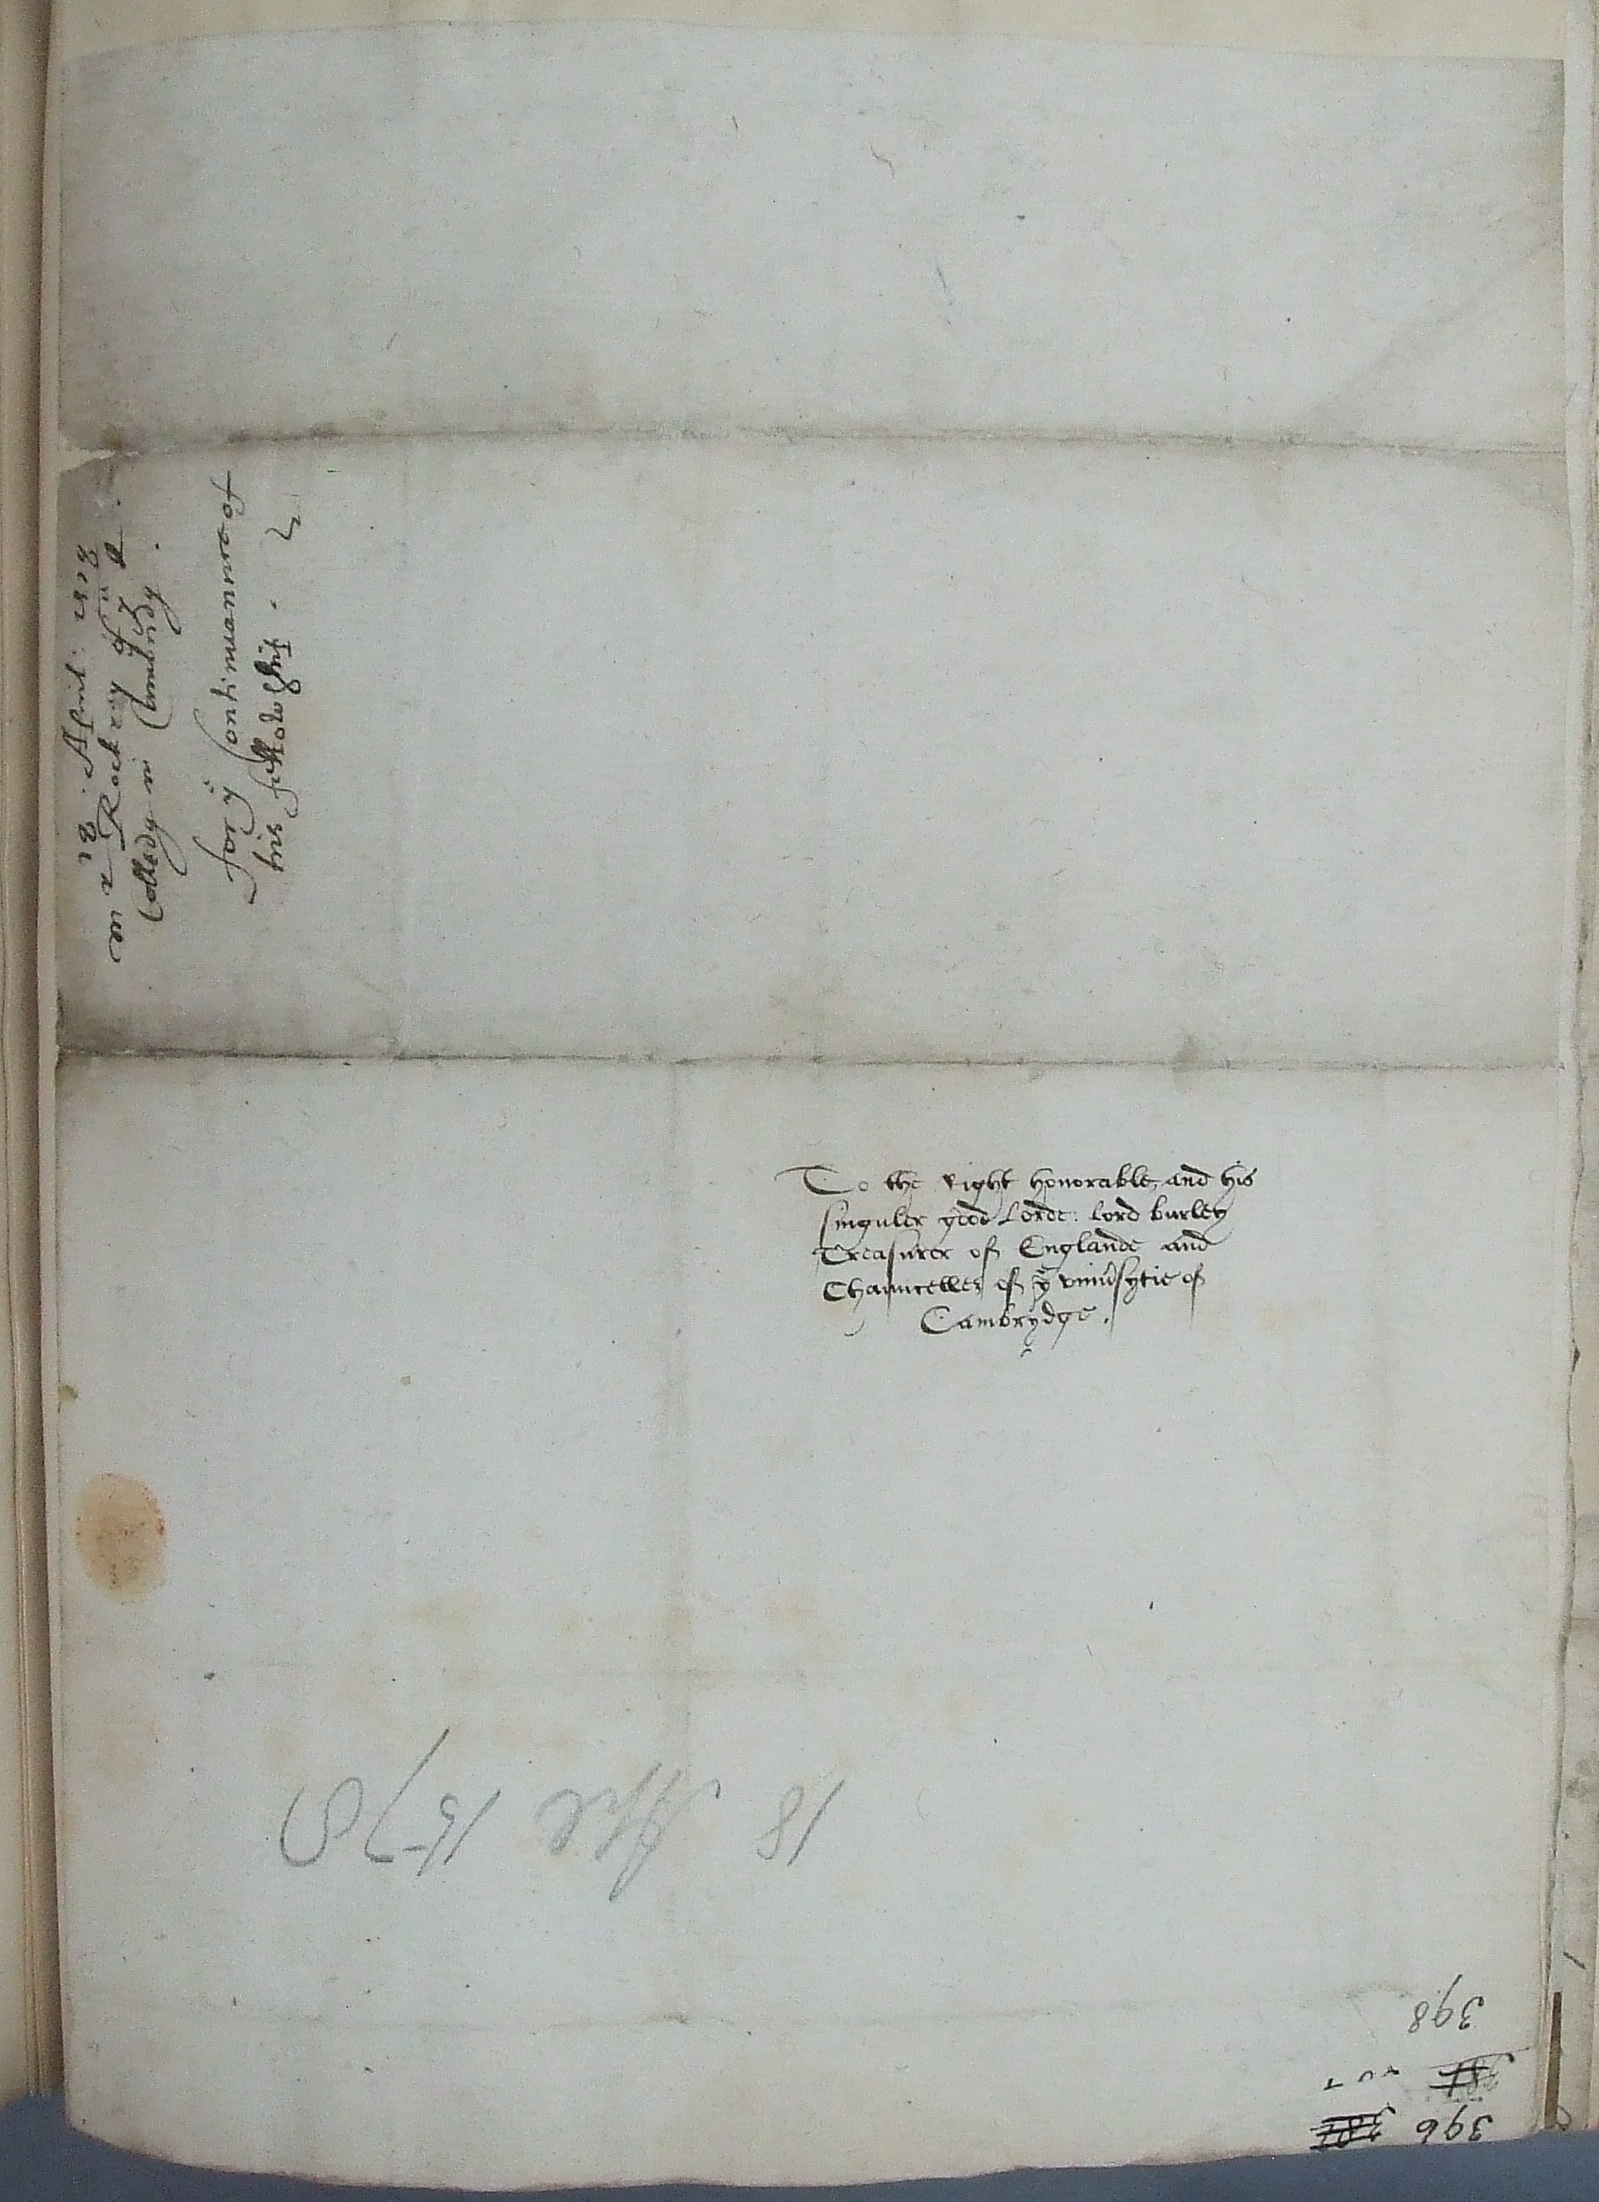 18 · April · 1578
mr Rockrey of yͤ Q.
Colledg in Cambridg.
for yͤ Continuannce of
his fellowship.
To the right honorable, and his
singuler good Lorde: lord burley
Treasurer of Englande and
Chaunceller of yͤ vniu̔sytie of
Cambrydge.
18 Apl 1578
398
396